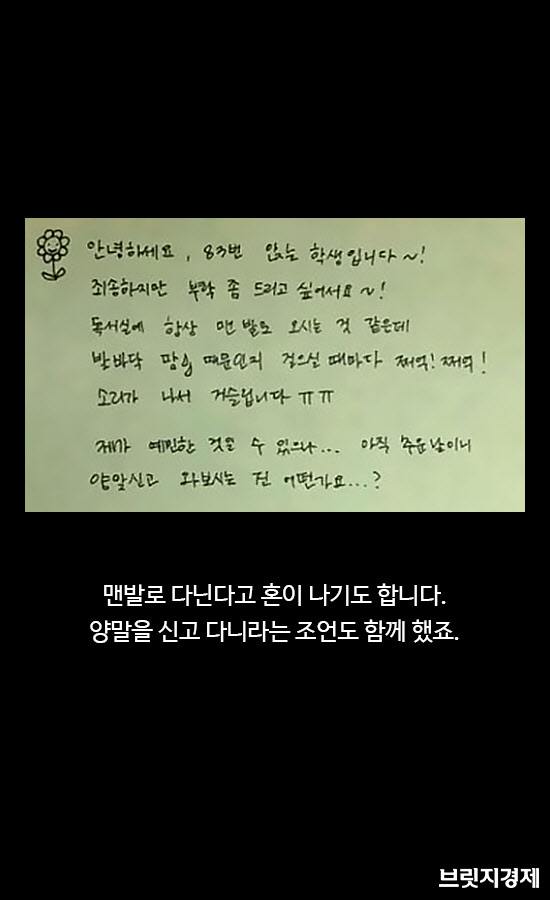 안녕하세요, 83번 앉는 학생입니다~!
죄송하지만 부탁 좀 드리고 싶어서요~!
독서실에 항상 맨발로 오시는 것 같은데
발바닥 땀 때문인지 걸으실 때마다 쩌억! 쩌억!
소리가 나서 거슬립니다 ㅠㅠ
제가 예민한 것일 수 있으나... 아직 추운날이니
양말신고 와보시는 건 어떤가요...?
맨발로 다닌다고 혼이 나기도 합니다.
양말을 신고 다니라는 조언도 함께 했죠.
브릿지경제